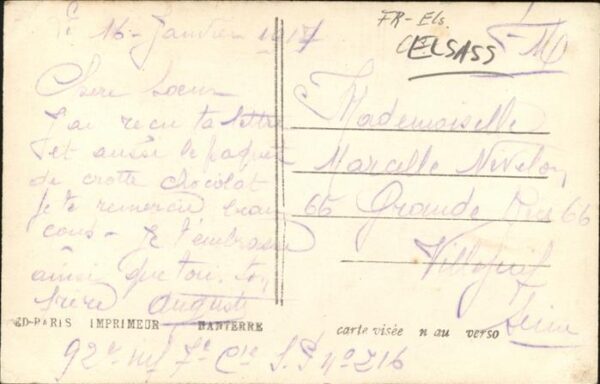 Le 16 Janvier 1917
Chere Soeur
J'ai recu ta lettre
et aussi le paquet
de crotte chocolat
je te remercie beau
cous - Je t'embrasse
ainsi que tou. ton
frere Auguste
92e inf 7e Cie S.P no 216
FR-Els.
ELSASS
F-M
Mademoiselle
Marcelle Nivelon
66 Grande Rue 66
Villejuif
Seine
ED-PARIS IMPRIMEUR NANTERRE
carte visée n au verso